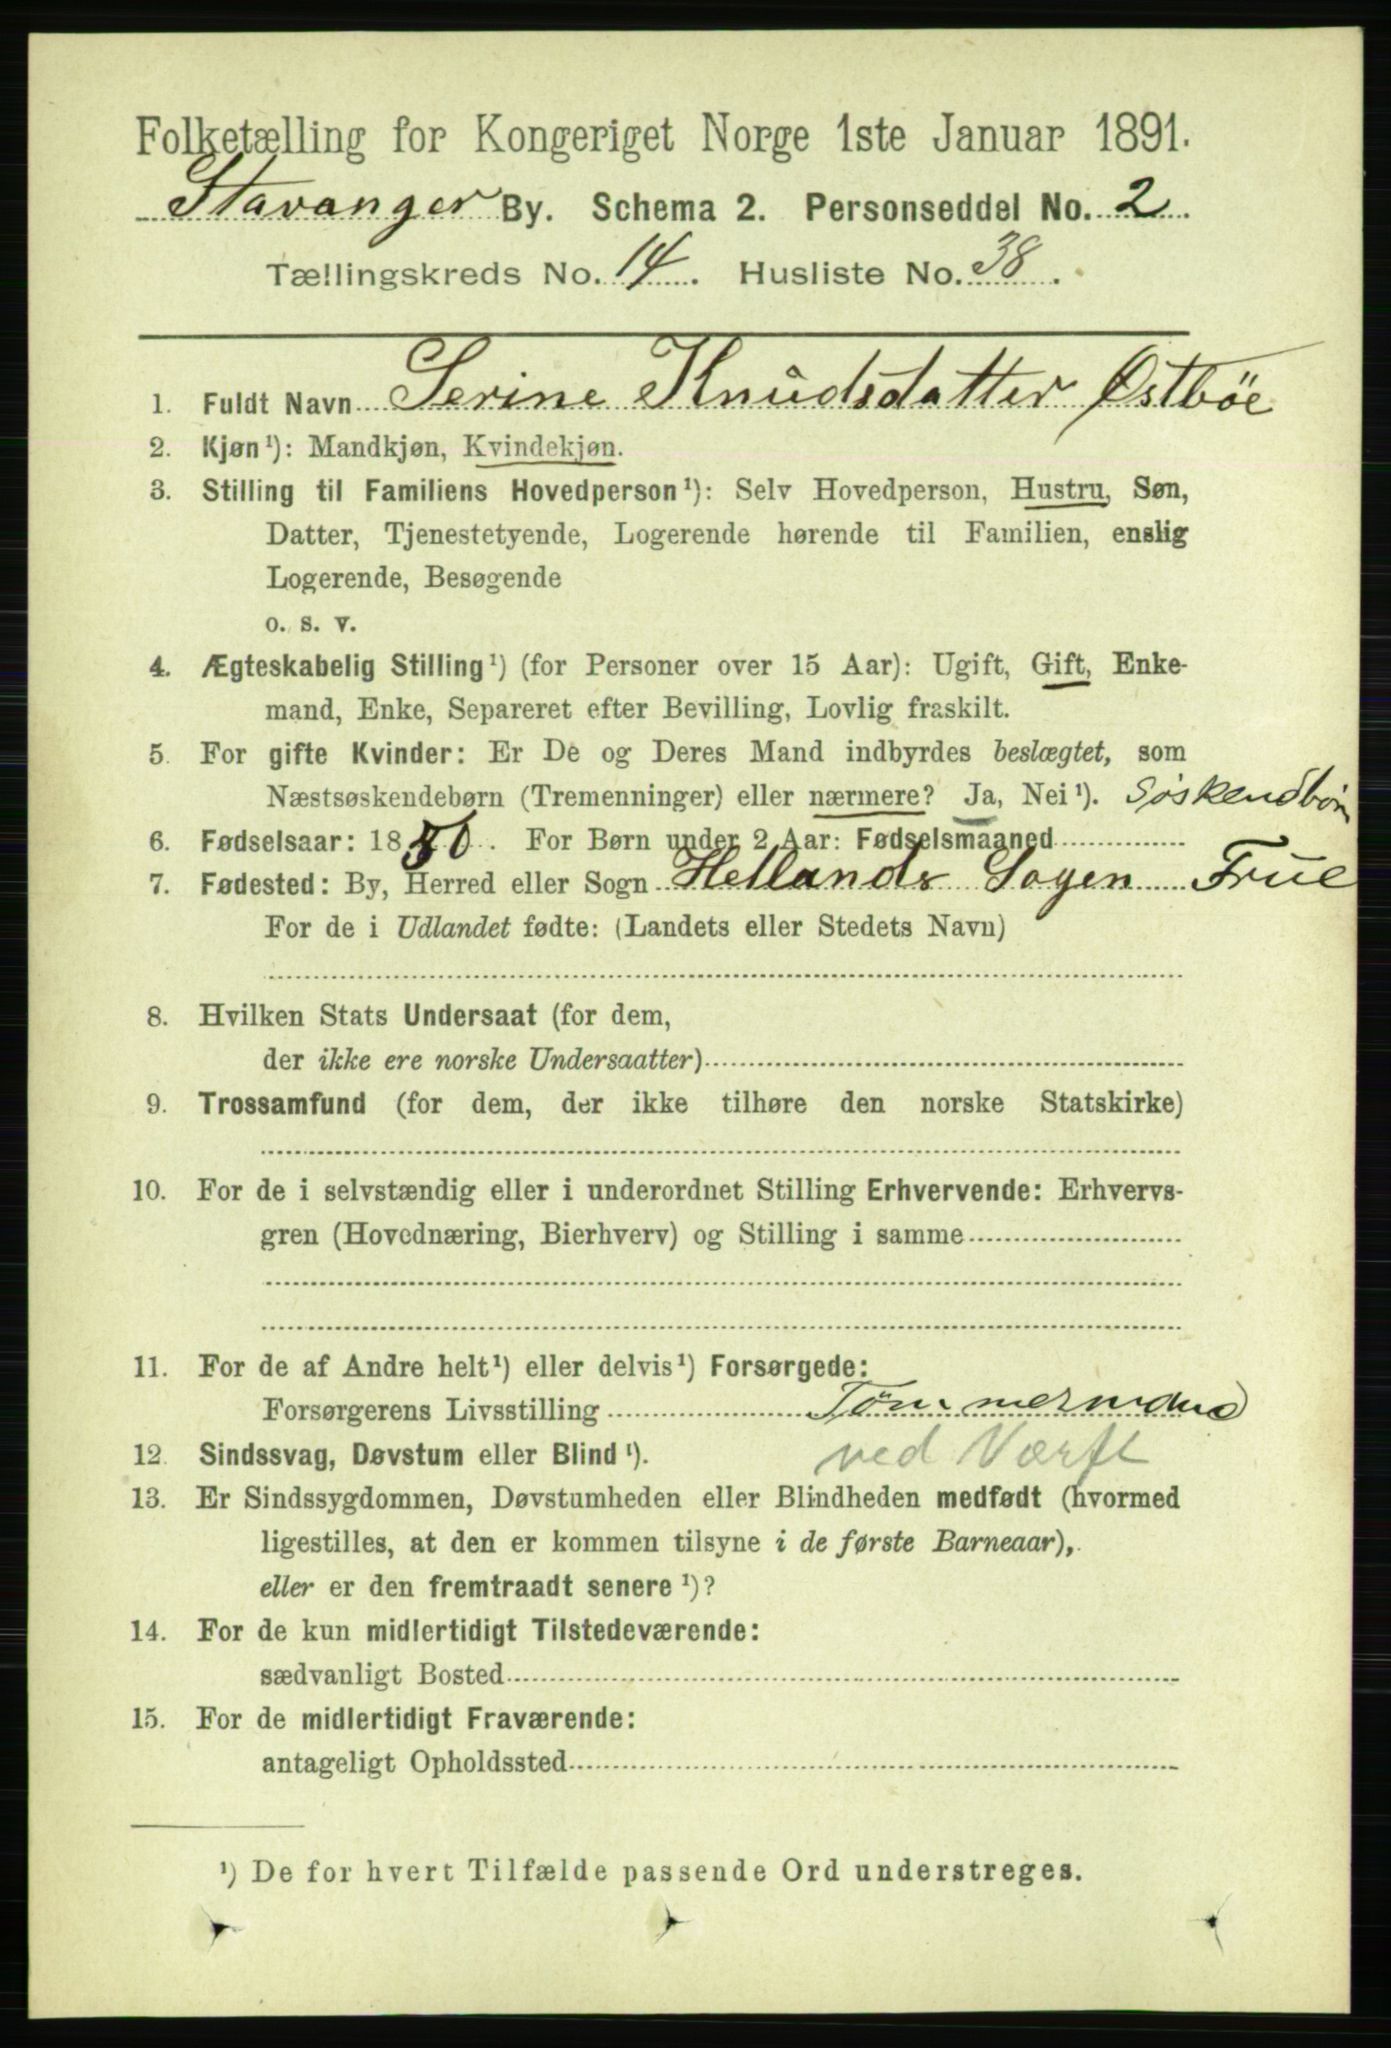 Folketælling for Kongeriget Norge 1ste Januar 1891.
Stavanger By. Schema 2. Personseddel No. 2.
Tællingskreds No. 14. Husliste No. 38.
1. Fuldt Navn Serine Knudsdatter Østbøe
2. Kjøn¹): Mandkjøn, Kvindekjøn.
3. Stilling til Familiens Hovedperson¹): Selv Hovedperson, Hustru, Søn,
Datter, Tjenestetyende, Logerende hørende til Familien, enslig
Logerende, Besøgende
o. s. v.
4. Ægteskabelig Stilling¹) (for Personer over 15 Aar): Ugift, Gift, Enke-
mand, Enke, Separeret efter Bevilling, Lovlig fraskilt.
5. For gifte Kvinder: Er De og Deres Mand indbyrdes beslægtet, som
Næstsøskendebørn (Tremenninger) eller nærmere? Ja, Nei¹). Søskendbørn
6. Fødselsaar: 1850. For Børn under 2 Aar: Fødselsmaaned
7. Fødested: By, Herred eller Sogn Hellands Sogen Frue
For de i Udlandet fødte: (Landets eller Stedets Navn)
8. Hvilken Stats Undersaat (for dem,
der ikke ere norske Undersaatter)
9. Trossamfund (for dem, der ikke tilhøre den norske Statskirke)
10. For de i selvstændig eller i underordnet Stilling Erhvervende: Erhvervs-
gren (Hovednæring, Bierhverv) og Stilling i samme
11. For de af Andre helt¹) eller delvis¹) Forsørgede:
Forsørgerens Livsstilling Tømmermand
12. Sindssvag, Døvstum eller Blind¹). ved Værft
13. Er Sindssygdommen, Døvstumheden eller Blindheden medfødt (hvormed
ligestilles, at den er kommen tilsyne i de første Barneaar),
eller er den fremtraadt senere¹)?
14. For de kun midlertidigt Tilstedeværende:
sædvanligt Bosted
15. For de midlertidigt Fraværende:
antageligt Opholdssted
¹) De for hvert Tilfælde passende Ord understreges.